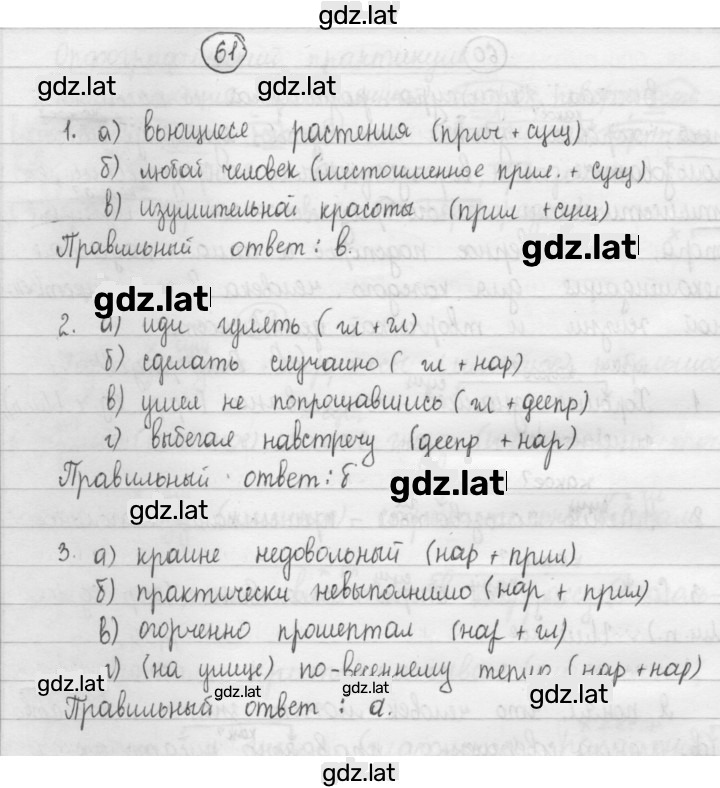 gdz.lat
61
gdz.lat gdz.lat
1. а) вьющиеся растения (прич + сущ)
б) любой человек (местоименное прил. + сущ)
в) изумительной красоты (прил + сущ)
Правильный ответ: в.
gdz.lat
gdz.lat
2. а) иди гулять (гл + гл)
б) сделать случайно (гл + нар)
в) ушел не попрощавшись (гл + деепр)
г) выбегая навстречу (деепр + нар)
Правильный ответ: б
gdz.lat
gdz.lat
3. а) крайне недовольный (нар + прил)
б) практически невыполнимо (нар + прил)
в) огорченно прошептал (нар + гл)
г) (на улице) по-весеннему тепло (нар + нар)
gdz.lat gdz.lat gdz.lat gdz.lat
Правильный ответ: а.
gdz.lat